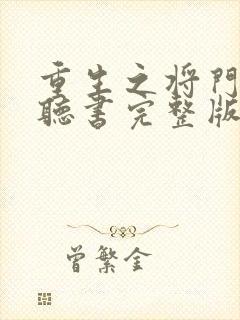 重生之将门
聽書完整版
曾繁金